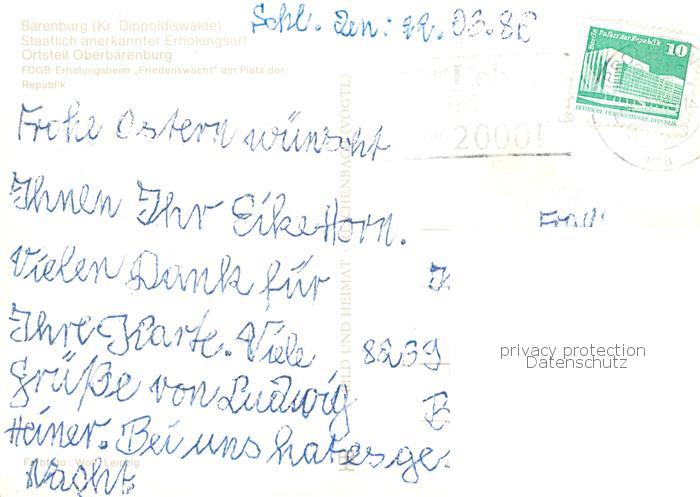 Schl. den: 22. 03. 86
Bärenburg (Kr. Dippoldiswalde)
Staatlich anerkannter Erholungsort
Ortsteil Oberbärenburg
FDGB-Erholungsheim „Friedenswacht“ am Platz der
Republik
Berlin Palast der Republik 10
DEUTSCHE DEMOKRATISCHE REPUBLIK
2000!
Frohe Ostern wünscht
Ihnen Ihr Eike Horn.
Vielen Dank für
Ihre Karte. Viele
Grüße von Ludwig
Heiner. Bei uns hat es ge-
Nacht
8239
BILD UND HEIMAT REICHENBACH (VOGTL)
privacy protection
Datenschutz